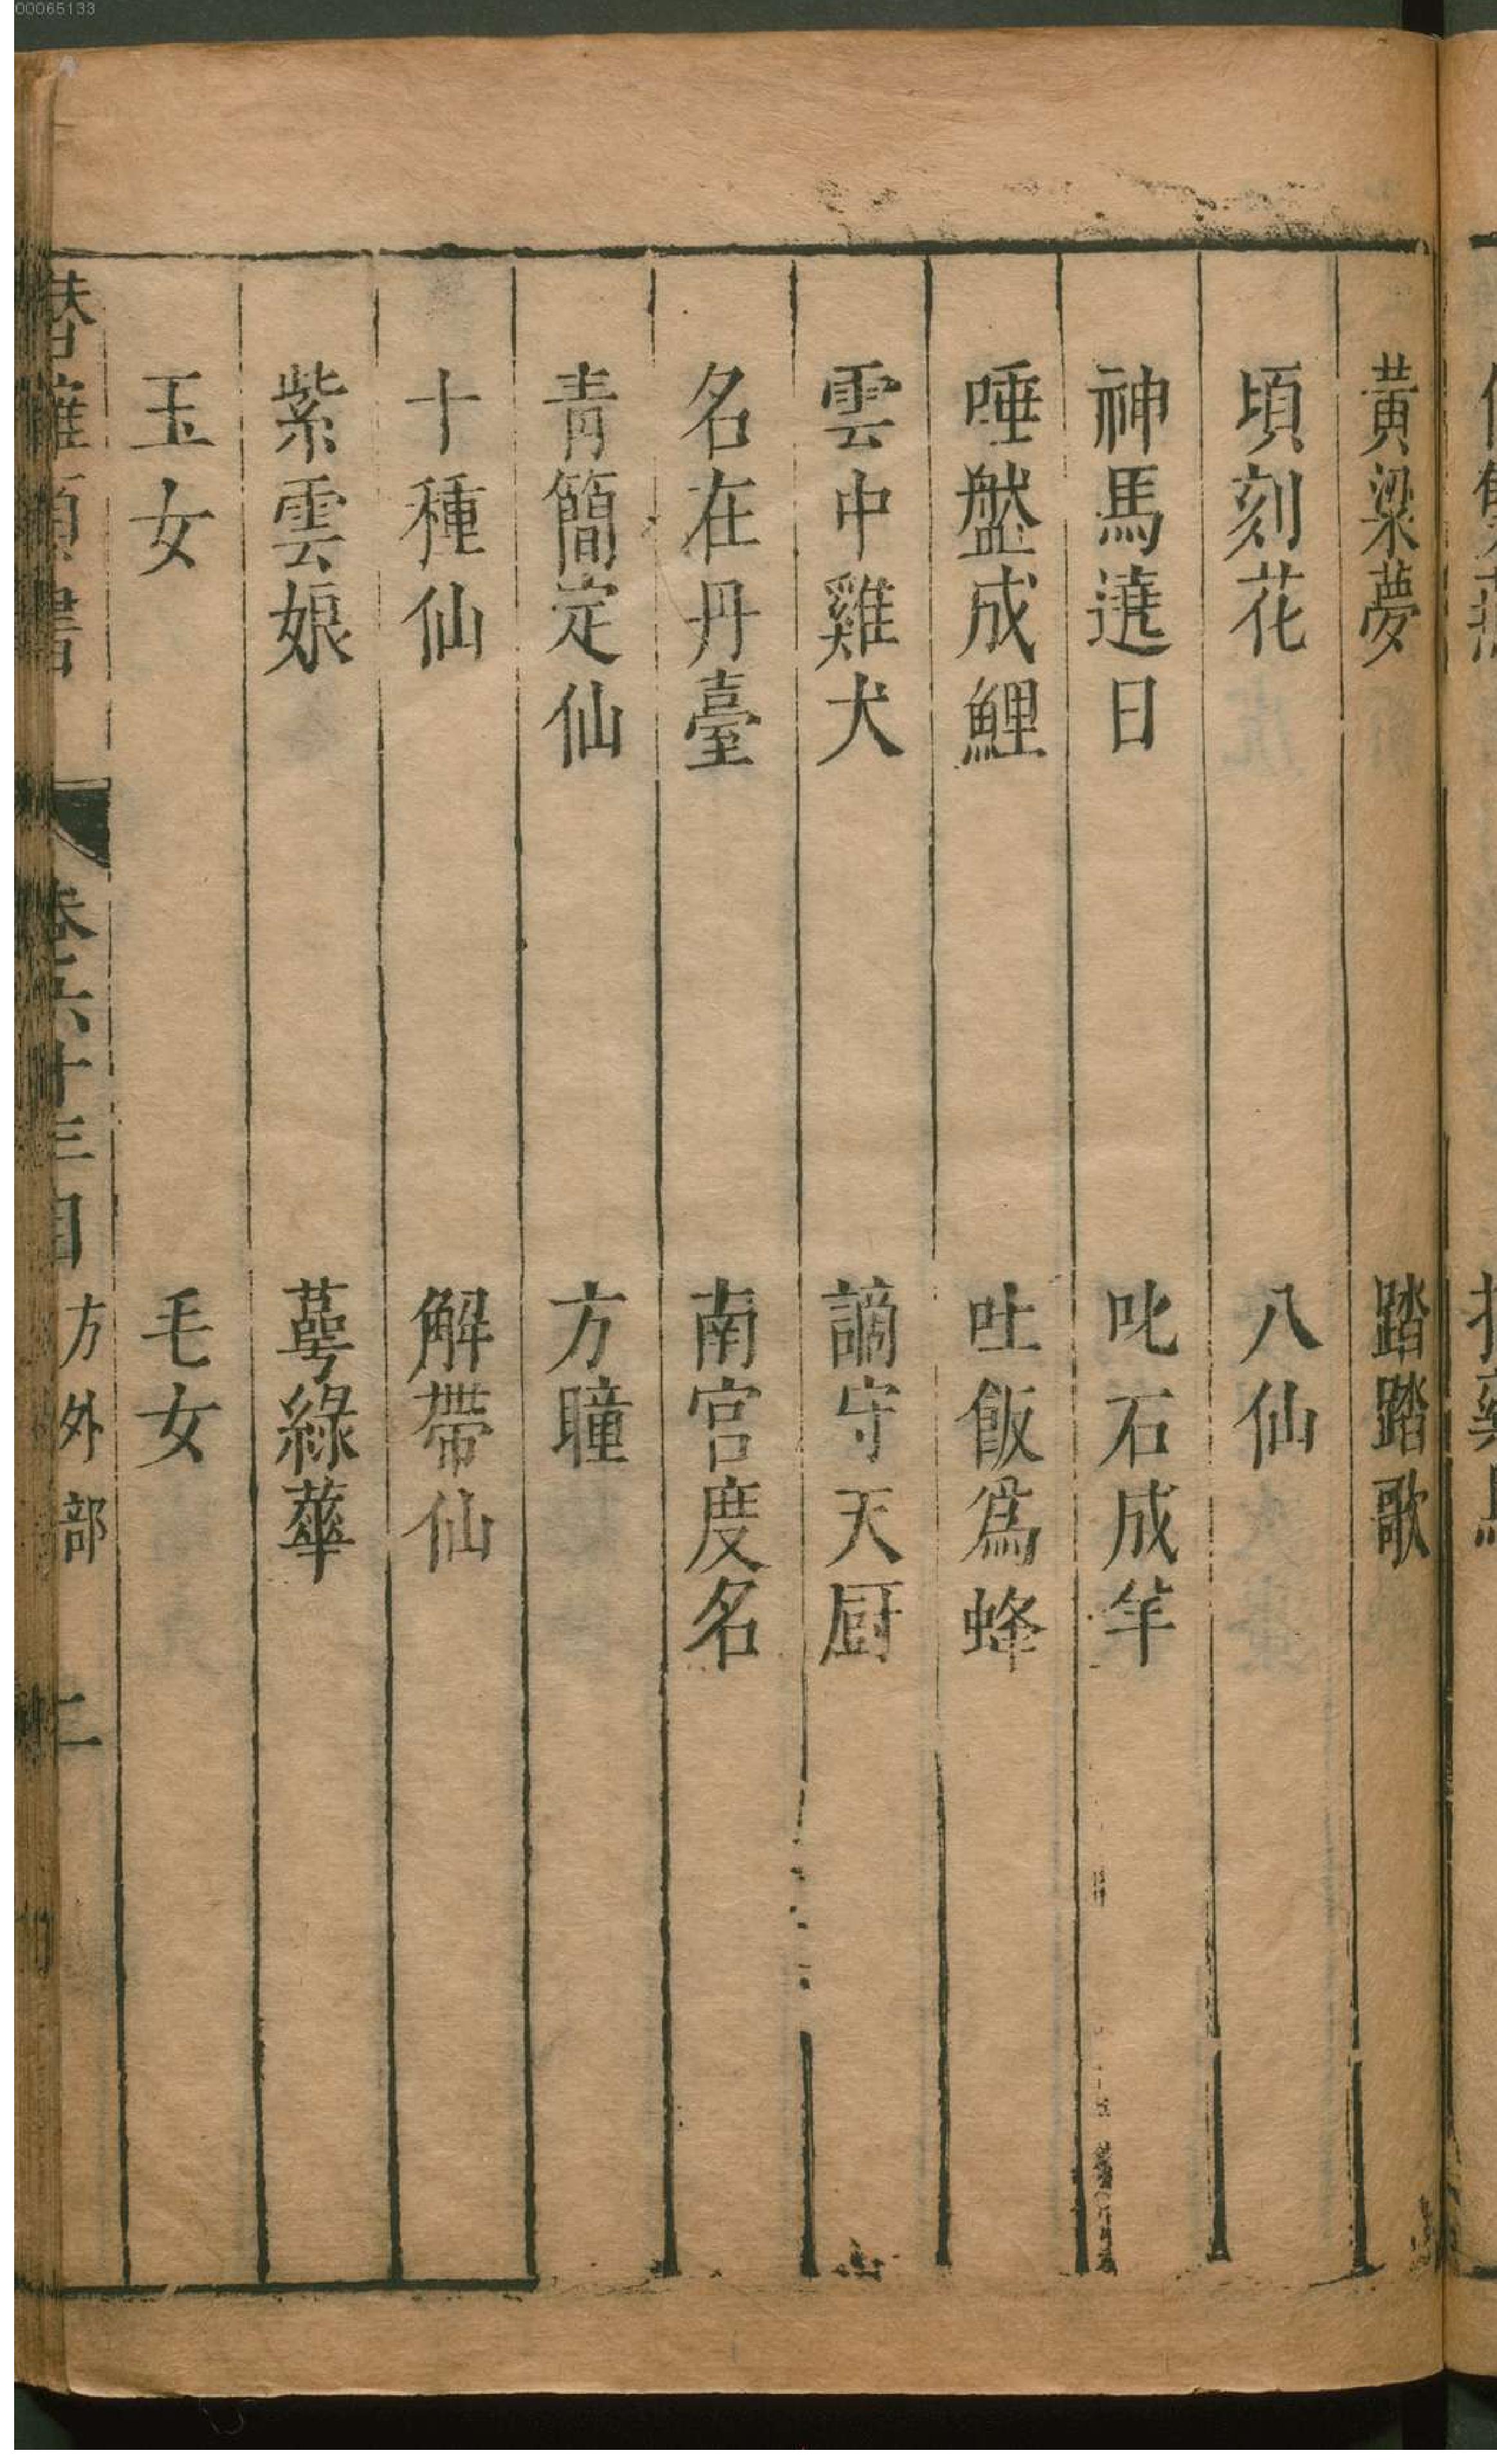 00065133
黃粱夢　踏踏歌
頃刻花　八仙
神馬遶日　叱石成羊
唾盤成鯉　吐飯爲蜂
雲中雞犬　謫守天厨
名在丹臺　南宫度名
青簡定仙　方瞳
十種仙　解帶仙
紫雲娘　萼綠華
玉女　毛女
卷六十三目　方外部　二